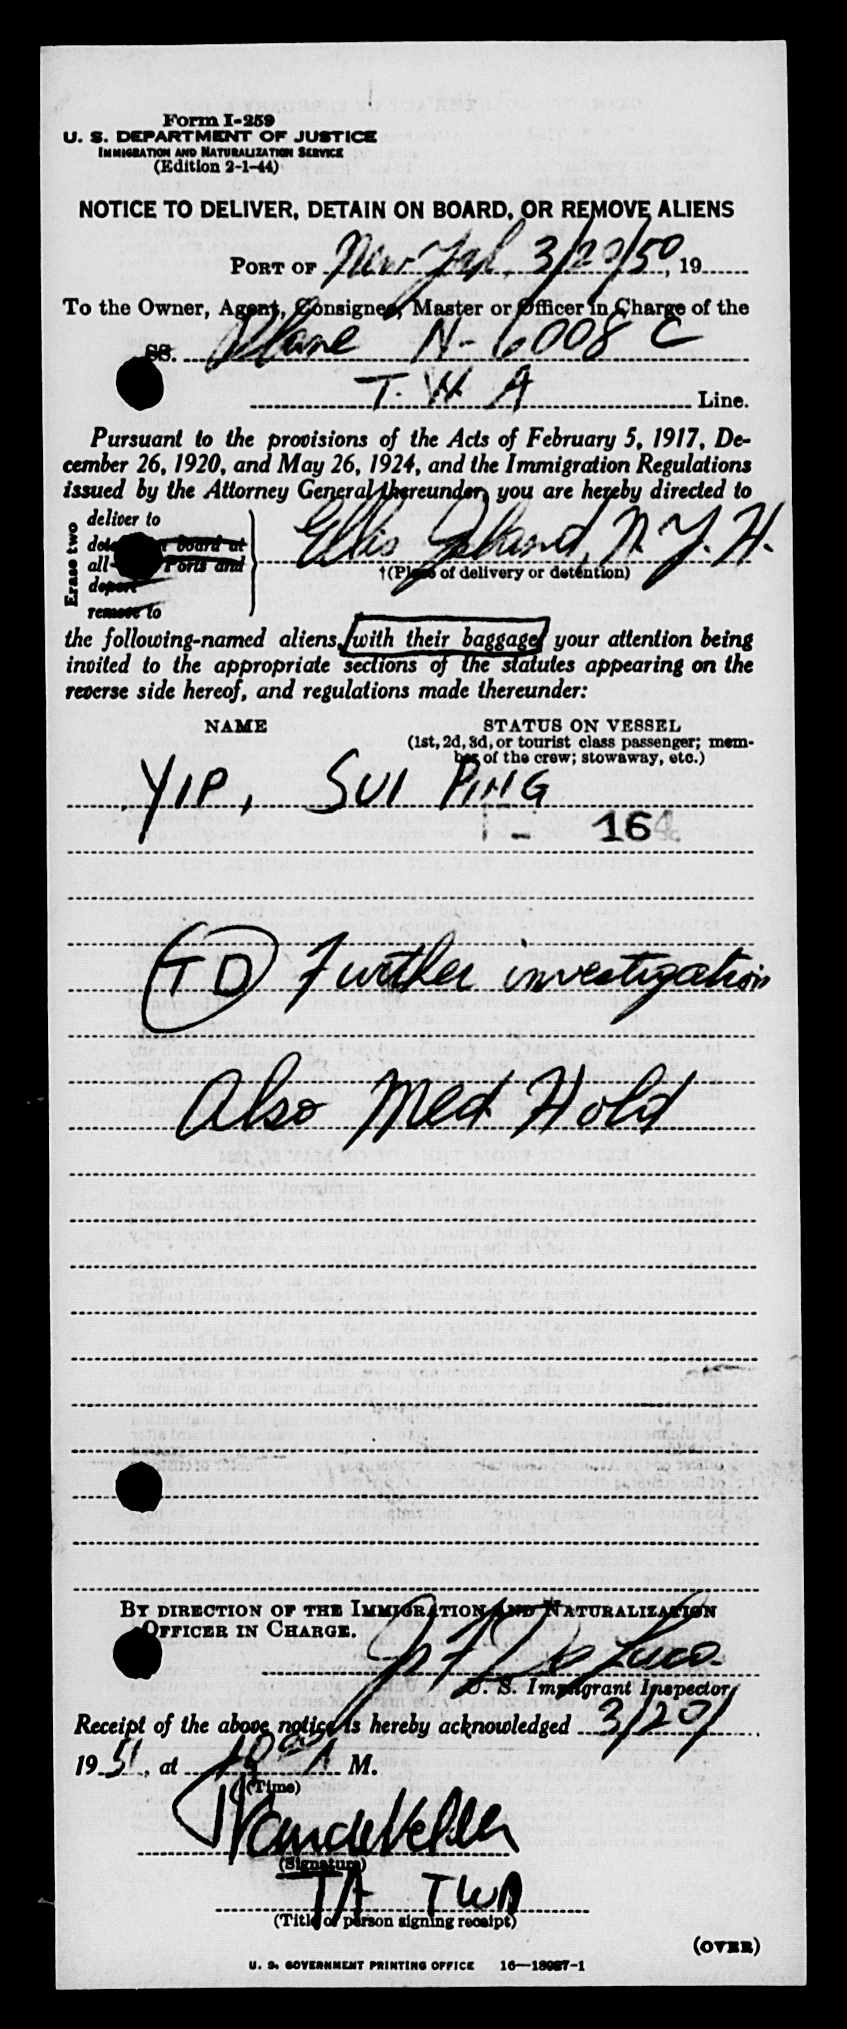 Form I-259
U. S. DEPARTMENT OF JUSTICE
IMMIGRATION AND NATURALIZATION SERVICE
(Edition 2-1-44)
NOTICE TO DELIVER, DETAIN ON BOARD, OR REMOVE ALIENS
PORT OF New York, 3/20/50, 19
To the Owner, Agent, Consignee, Master or Officer in Charge of the
SS. Plane N-6008 C
T. W. A Line.
Pursuant to the provisions of the Acts of February 5, 1917, De-
cember 26, 1920, and May 26, 1924, and the Immigration Regulations
issued by the Attorney General thereunder, you are hereby directed to
Erase two
deliver to
board at
all Ports and
deport
remove to
Ellis Island, N. Y. H.
†(Place of delivery or detention)
the following-named aliens, with their baggage, your attention being
invited to the appropriate sections of the statutes appearing on the
reverse side hereof, and regulations made thereunder:
NAME STATUS ON VESSEL
(1st, 2d, 3d, or tourist class passenger; mem-
ber of the crew; stowaway, etc.)
YIP, SUI PING
- 164
TD Further investigation
Also Med Hold
BY DIRECTION OF THE IMMIGRATION AND NATURALIZATION
OFFICER IN CHARGE.
De Luca
U. S. Immigrant Inspector
Receipt of the above notice is hereby acknowledged 3/20/
1951, at 10 00 A M.
(Time)
(Signature)
TA TWA
(Title of person signing receipt)
(OVER)
U. S. GOVERNMENT PRINTING OFFICE 16—13987-1